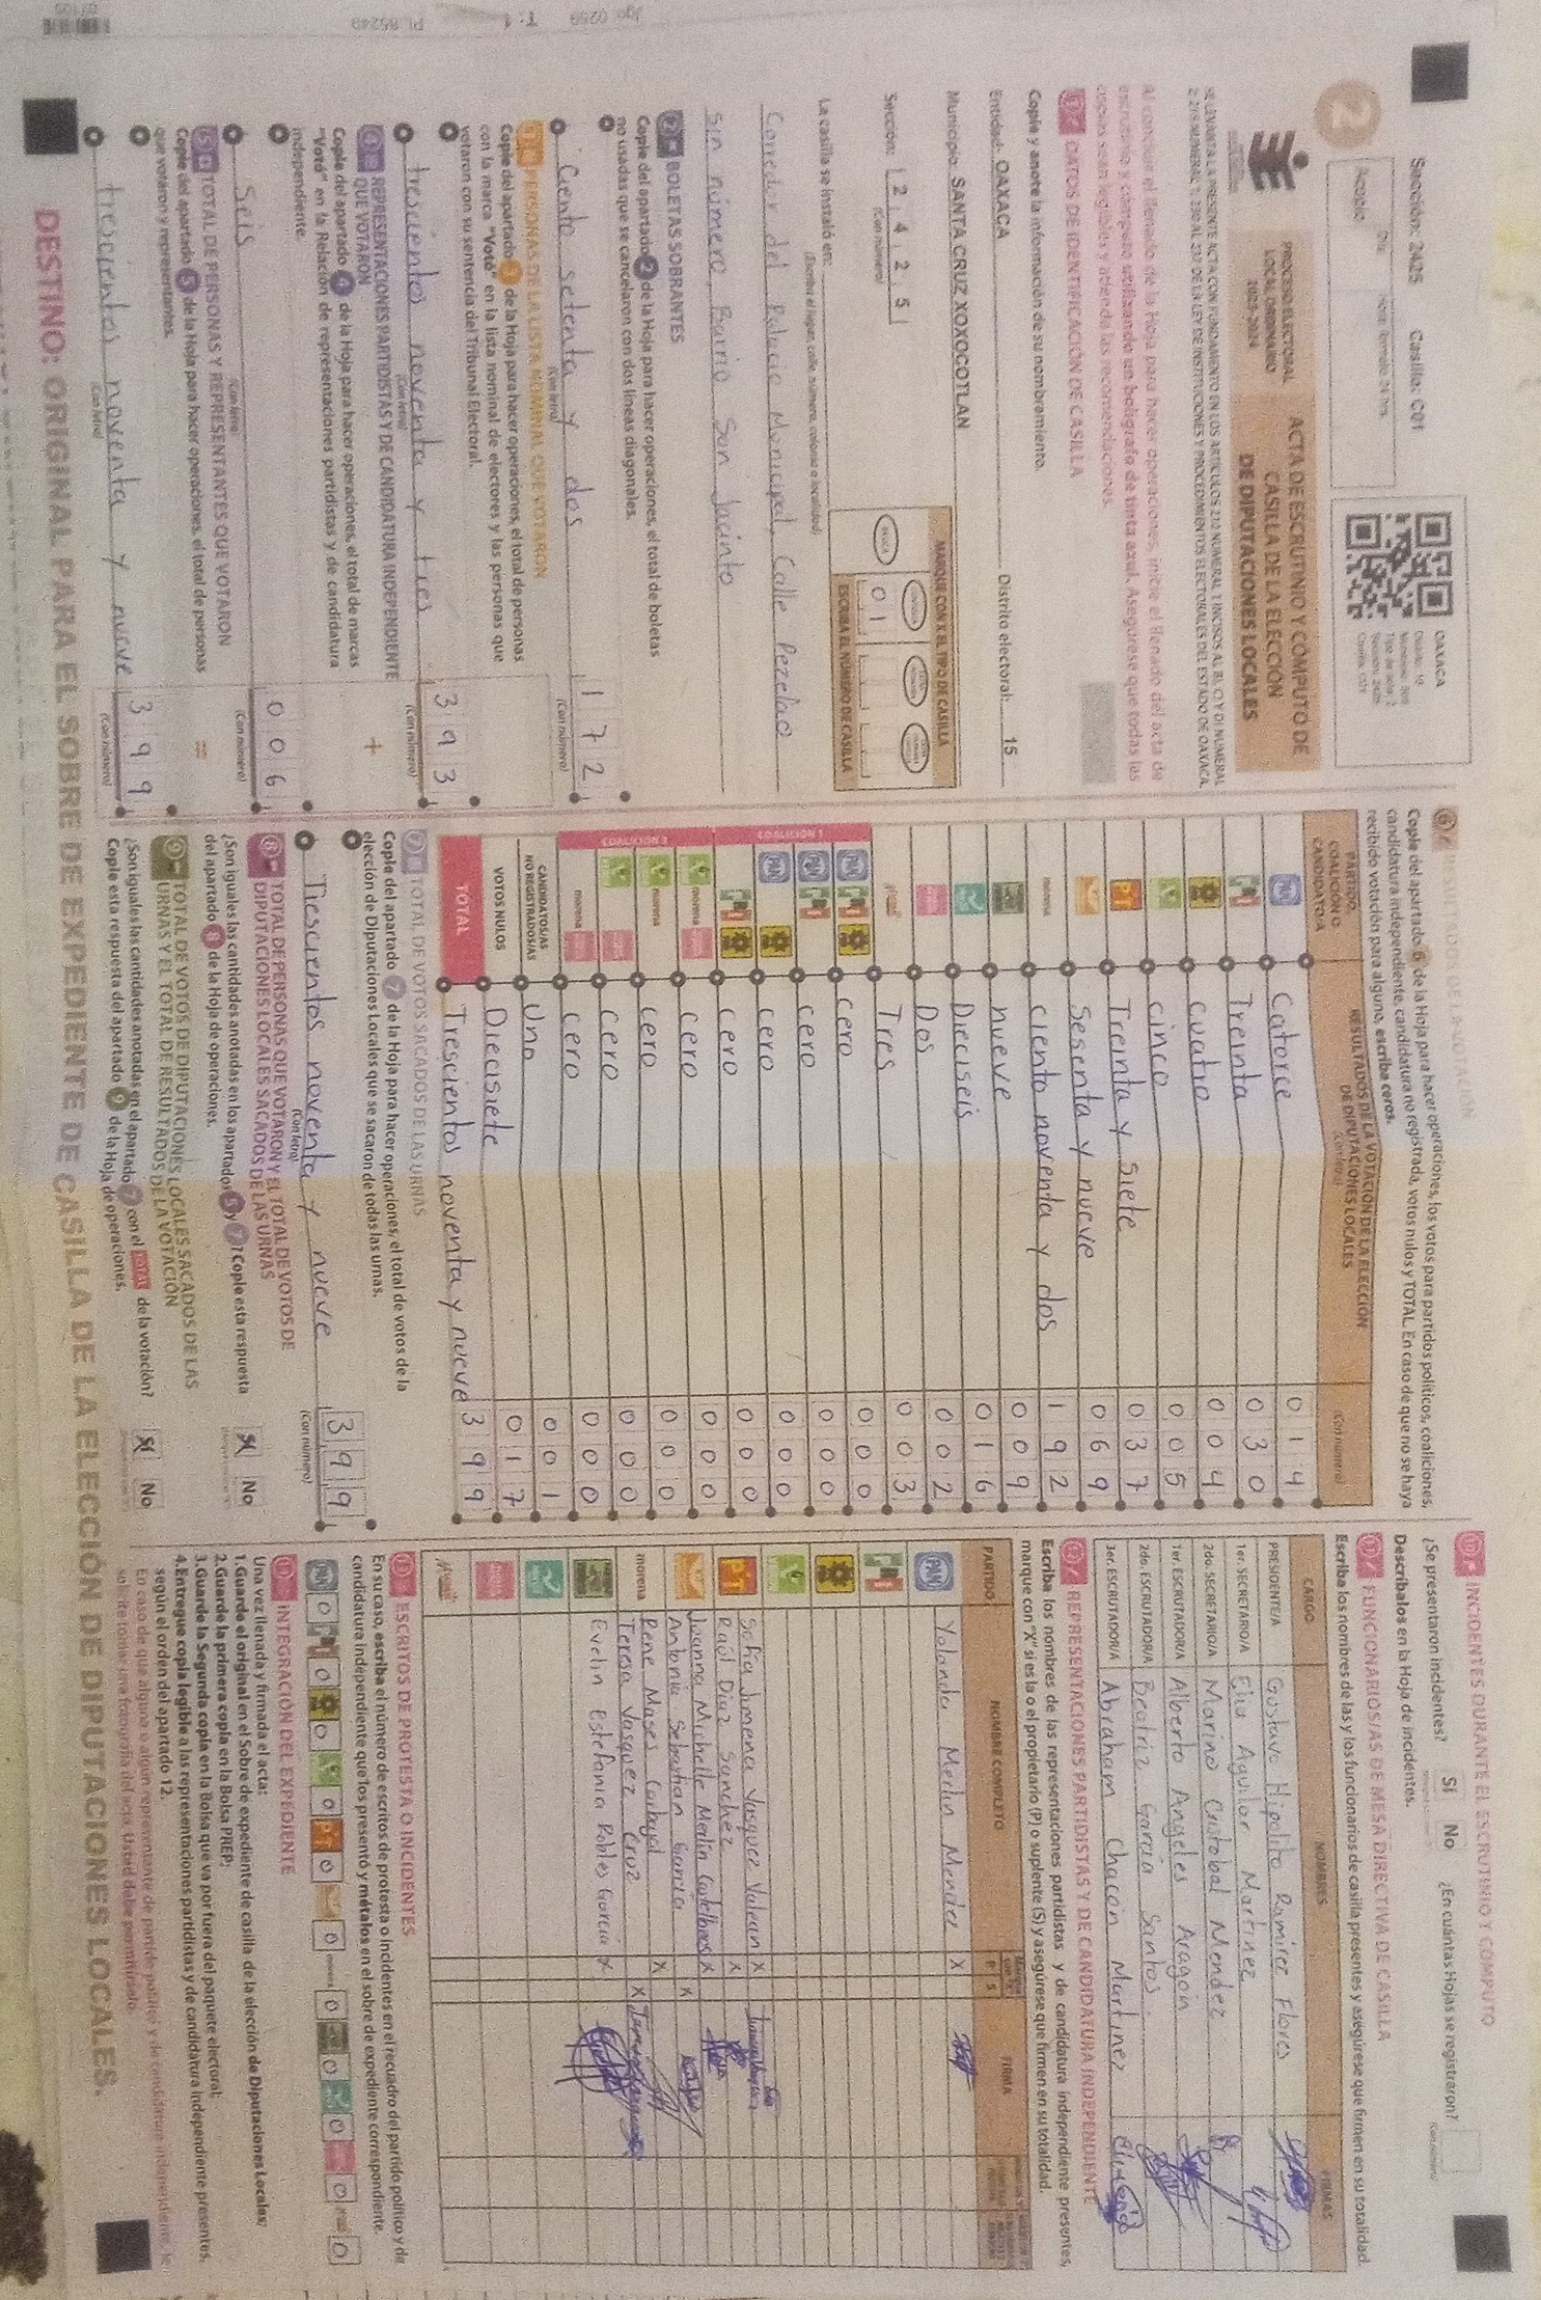 Sección: 2425 Casilla: C01
OAXACA
2
Acopio
PROCESO ELECTORAL
LOCAL ORDINARIO
2023-2024
ACTA DE ESCRUTINIO Y CÓMPUTO DE
CASILLA DE LA ELECCIÓN
DE DIPUTACIONES LOCALES
Al concluir el llenado de la Hoja para hacer operaciones, inicie el llenado del acta de
escrutinio y cómputo utilizando un bolígrafo de tinta azul. Asegúrese que todas las
copias sean legibles y atienda las recomendaciones.
1 DATOS DE IDENTIFICACIÓN DE CASILLA
Copie y anote la información de su nombramiento.
Entidad: OAXACA Distrito electoral: 15
Municipio: SANTA CRUZ XOXOCOTLAN
Sección: 2 4 2 5
(Con número)
MARQUE CON X EL TIPO DE CASILLA
0 1
ESCRIBA EL NÚMERO DE CASILLA
La casilla se instaló en:
(Escriba el lugar, calle, número, colonia o localidad)
Corredor del Palacio Municipal, Calle Pezelao
sin número, Barrio San Jacinto
2 BOLETAS SOBRANTES
Copie del apartado 2 de la Hoja para hacer operaciones, el total de boletas
no usadas que se cancelaron con dos líneas diagonales.
Ciento setenta y dos 1 7 2
(Con letra) (Con número)
3 PERSONAS DE LA LISTA NOMINAL QUE VOTARON
Copie del apartado 3 de la Hoja para hacer operaciones, el total de personas
con la marca "Votó" en la lista nominal de electores y las personas que
votaron con su sentencia del Tribunal Electoral.
trescientos noventa y tres 3 9 3
(Con letra) (Con número)
+
4 REPRESENTACIONES PARTIDISTAS Y DE CANDIDATURA INDEPENDIENTE
QUE VOTARON
Copie del apartado 4 de la Hoja para hacer operaciones, el total de marcas
"Votó" en la Relación de representaciones partidistas y de candidatura
independiente.
seis 0 0 6
(Con letra) (Con número)
=
5 TOTAL DE PERSONAS Y REPRESENTANTES QUE VOTARON
Copie del apartado 5 de la Hoja para hacer operaciones, el total de personas
que votaron y representantes.
trescientos noventa y nueve 3 9 9
(Con letra) (Con número)
6 RESULTADOS DE LA VOTACIÓN
Copie del apartado 6 de la Hoja para hacer operaciones, los votos para partidos políticos, coaliciones,
candidatura independiente, candidatura no registrada, votos nulos y TOTAL. En caso de que no se haya
recibido votación para alguno, escriba ceros.
PARTIDO, COALICIÓN O CANDIDATO/A
RESULTADOS DE LA VOTACIÓN DE LA ELECCIÓN
DE DIPUTACIONES LOCALES
(Con letra) (Con número)
PAN Catorce 0 1 4
PRI Treinta 0 3 0
Cuatro 0 0 4
cinco 0 0 5
PT Treinta y siete 0 3 7
Sesenta y nueve 0 6 9
morena ciento noventa y dos 1 9 2
nueve 0 0 9
Dieciseis 0 1 6
Dos 0 0 2
Tres 0 0 3
COALICIÓN 1
PAN PRI cero 0 0 0
PAN PRI cero 0 0 0
PAN cero 0 0 0
PRI cero 0 0 0
COALICIÓN 2
morena cero 0 0 0
morena cero 0 0 0
cero 0 0 0
morena cero 0 0 0
CANDIDATOS/AS
NO REGISTRADOS/AS Uno 0 0 1
VOTOS NULOS Diecisiete 0 1 7
TOTAL Trescientos noventa y nueve 3 9 9
7 TOTAL DE VOTOS SACADOS DE LAS URNAS
Copie del apartado 7 de la Hoja para hacer operaciones, el total de votos de la
elección de Diputaciones Locales que se sacaron de todas las urnas.
Trescientos noventa y nueve 3 9 9
(Con letra) (Con número)
8 TOTAL DE PERSONAS QUE VOTARON Y EL TOTAL DE VOTOS DE
DIPUTACIONES LOCALES SACADOS DE LAS URNAS
¿Son iguales las cantidades anotadas en los apartados 5 y 7? Copie esta respuesta
del apartado 8 de la Hoja de operaciones.
Sí No
9 TOTAL DE VOTOS DE DIPUTACIONES LOCALES SACADOS DE LAS
URNAS Y EL TOTAL DE RESULTADOS DE LA VOTACIÓN
¿Son iguales las cantidades anotadas en el apartado 7 con el TOTAL de la votación?
Copie esta respuesta del apartado 9 de la Hoja de operaciones.
Sí No
10 INCIDENTES DURANTE EL ESCRUTINIO Y CÓMPUTO
¿Se presentaron incidentes? Sí No ¿En cuántas Hojas se registraron?
Descríbalos en la Hoja de incidentes.
11 FUNCIONARIOS/AS DE MESA DIRECTIVA DE CASILLA
Escriba los nombres de las y los funcionarios de casilla presentes y asegúrese que firmen en su totalidad.
CARGO NOMBRES FIRMAS
PRESIDENTE/A Gustavo Hipolito Ramirez Flores
1er. SECRETARIO/A Elia Aguilar Martinez
2do. SECRETARIO/A Marino Cristobal Mendez
1er. ESCRUTADOR/A Alberto Angeles Aragon
2do. ESCRUTADOR/A Beatriz Garcia Santos.
3er. ESCRUTADOR/A Abraham Chacón Martinez
12 REPRESENTACIONES PARTIDISTAS Y DE CANDIDATURA INDEPENDIENTE
Escriba los nombres de las representaciones partidistas y de candidatura independiente presentes,
marque con "X" si es la o el propietario (P) o suplente (S) y asegúrese que firmen en su totalidad.
PARTIDO NOMBRE COMPLETO P S FIRMA
PAN Yolanda Merlin Mendez X
Sofia Jimena Vasquez X
PT Raúl Diaz Sanchez X
Joanna Michelle Merlin X
Antonio Sebastian Garcia X
morena Rene Moses Carbajal X
Teresa Vasquez Cruz X
Evelin Estefania Robles Garcia X
13 ESCRITOS DE PROTESTA O INCIDENTES
En su caso, escriba el número de escritos de protesta o incidentes en el recuadro del partido político y de
candidatura independiente que los presentó y métalos en el sobre de expediente correspondiente.
PAN 0 PRI 0 0 0 PT 0 0 morena 0 0 0 0 0
14 INTEGRACIÓN DEL EXPEDIENTE
Una vez llenada y firmada el acta:
1.Guarde el original en el Sobre de expediente de casilla de la elección de Diputaciones Locales;
2.Guarde la primera copia en la Bolsa PREP;
3.Guarde la Segunda copia en la Bolsa que va por fuera del paquete electoral;
4.Entregue copia legible a las representaciones partidistas y de candidatura independiente presentes,
según el orden del apartado 12.
DESTINO: ORIGINAL PARA EL SOBRE DE EXPEDIENTE DE CASILLA DE LA ELECCIÓN DE DIPUTACIONES LOCALES.